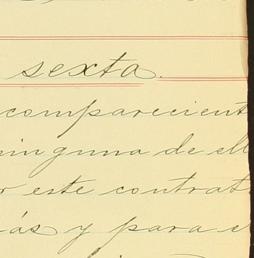 sexta.
comparecient
ninguna de ell
r este contrat
ás y para e